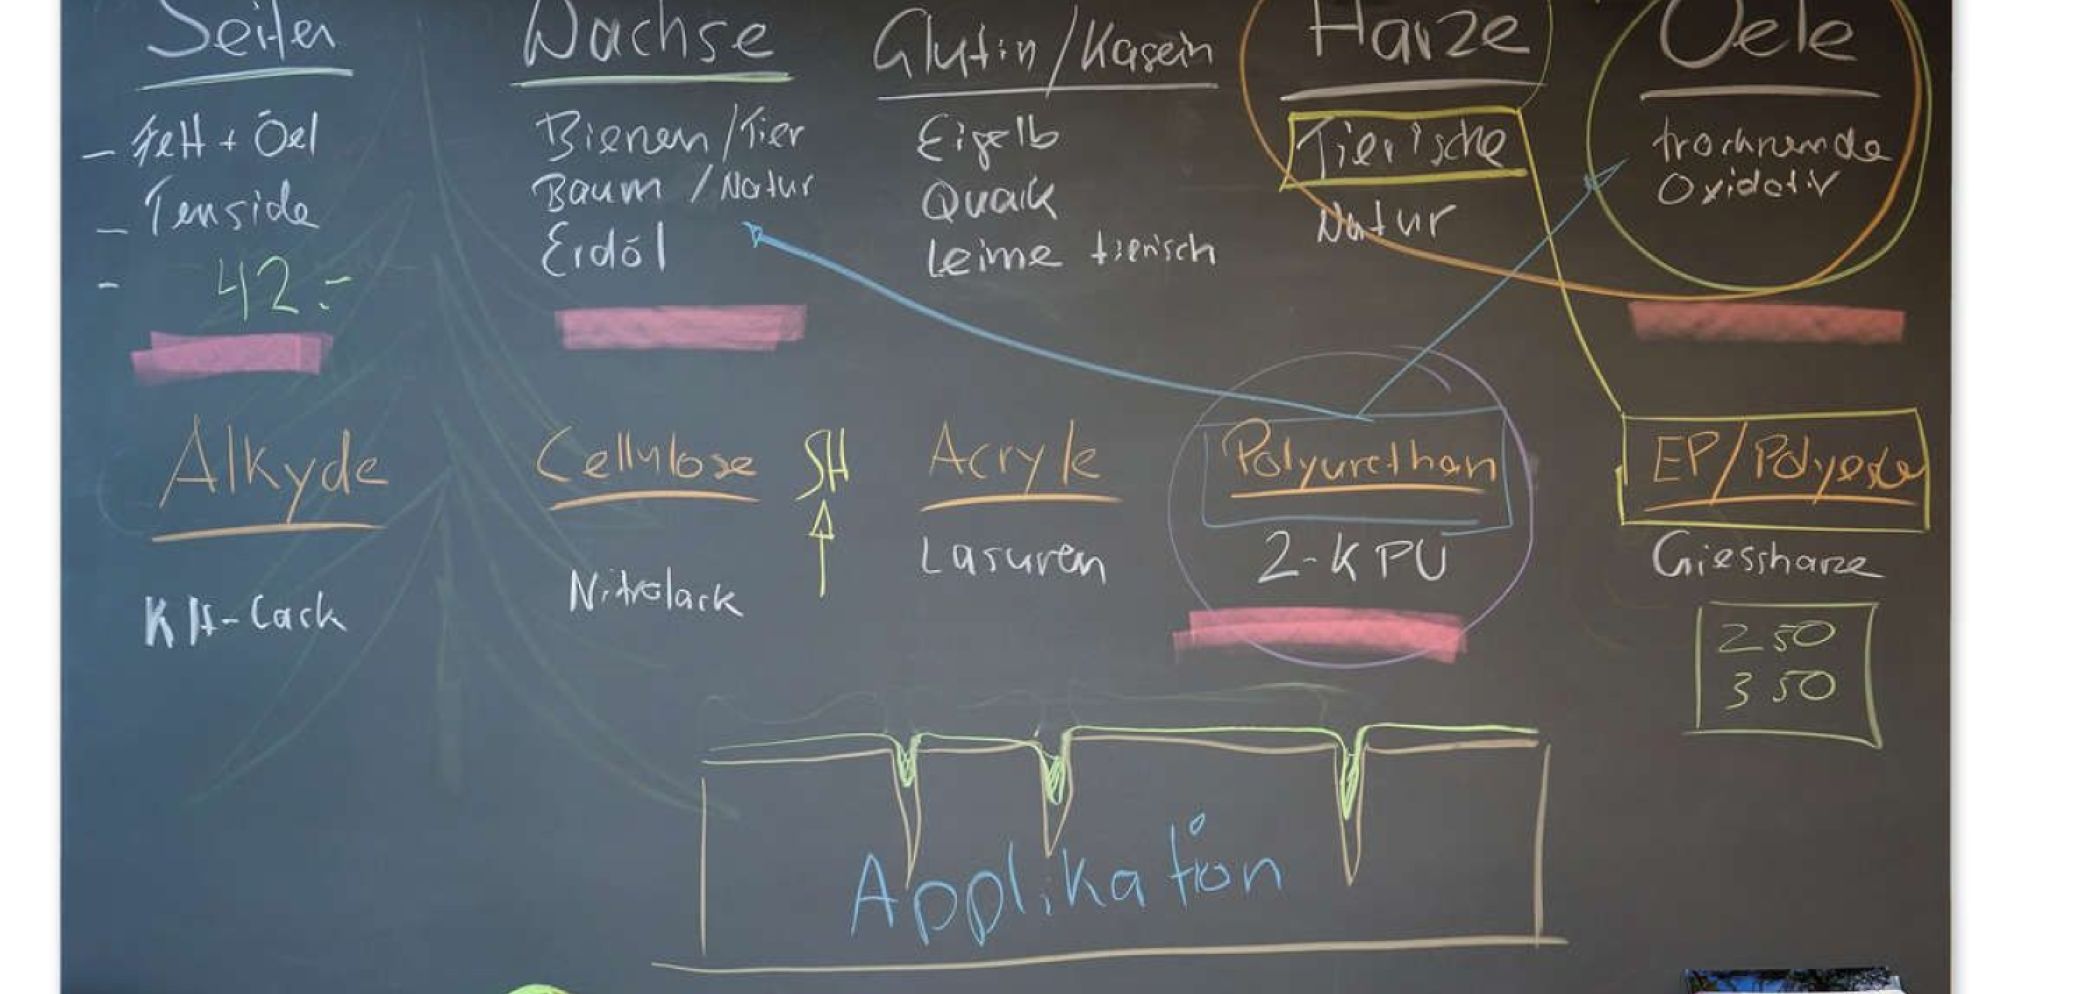 Seifen
- Fett + Öel
- Tenside
- 42.-
Wachse
Bienen/Tier
Baum / Natur
Erdöl
Glutin/Kasein
Eigelb
Quark
Leime tierisch
Harze
Tierische
Natur
Oele
trocknende
Oxidativ
Alkyde
KH-Lack
Cellulose
Nitrolack
SH
Acryle
Lasuren
Polyurethan
2-K PU
EP/Polyester
Giessharze
250
350
Applikation